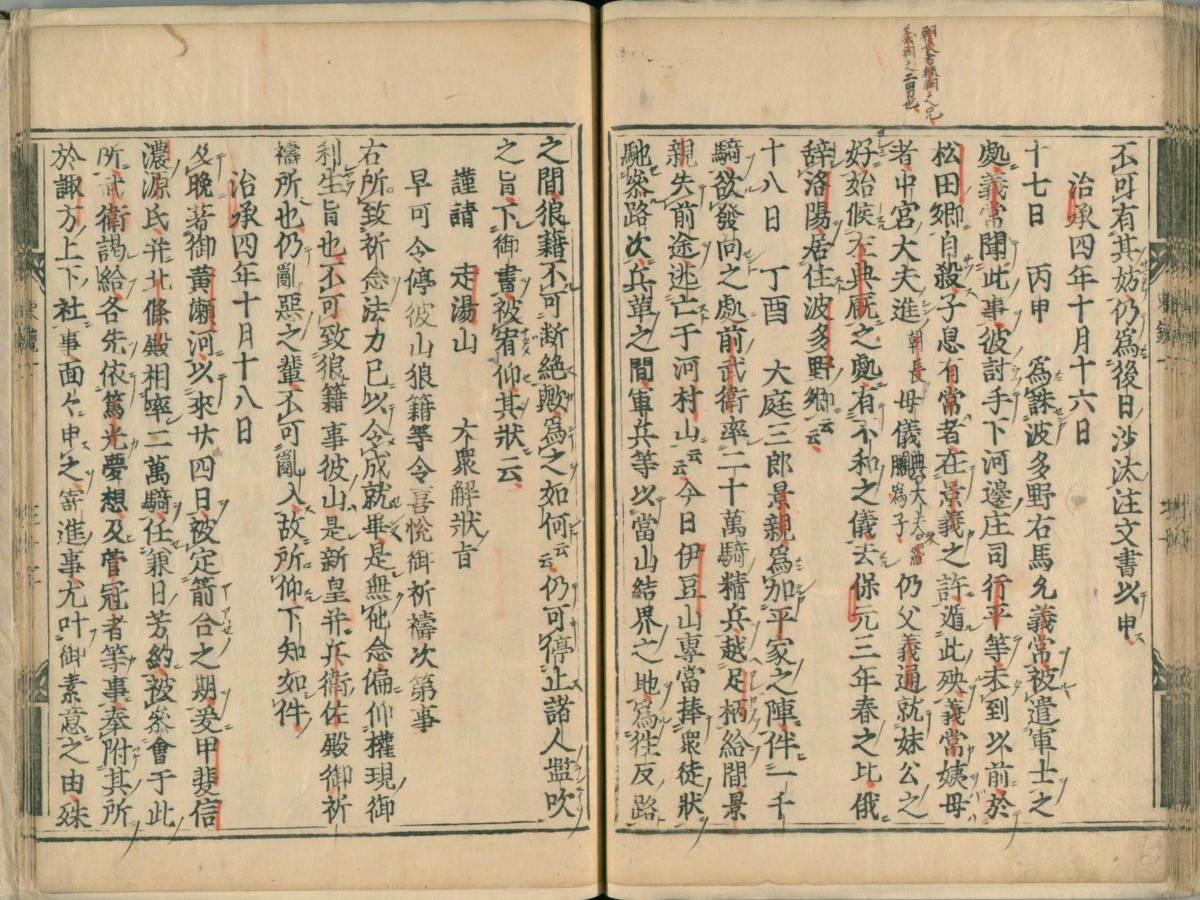 朝長者頼朝之兄
義朝之二男也
不可有其妨仍爲後日沙汰注文書以申
治承四年十月十六日
十七日 丙申 爲誅波多野右馬允義常被遣軍士之
處義常聞此事彼討手下河邊庄司行平等未到以前於
松田郷自殺子息有常者在景義之許遁此殃義常姨母
者中宮大夫進朝長母儀典膳大夫久經爲子仍父義通就妹公之
好始候左典厩之處有不和之儀去保元三年春之比俄
辞洛陽居住波多野郷云云
十八日 丁酉 大庭三郎景親爲加平家之陣伴一千
騎欲發向之處前武衛率二十萬騎精兵越足柄給間景
親失前途逃亡于河村山云云今日伊豆山專當捧衆徒狀
馳參路次兵革之間軍兵等以當山結界之地爲往反路
之間狼藉不可断絶歟爲之如何云云仍可停止諸人濫吹
之旨下御書被宥仰其狀云
謹請 走湯山 大衆解狀旨
早可令停彼山狼籍等令喜悅御祈禱次第事
右所致祈念法力已以令成就畢是無他念偏仰權現御
利生旨也不可致狼籍事彼山是新皇并兵衛佐殿御祈
禱所也仍亂惡之輩不可亂入故所仰下知如件
治承四年十月十八日
及晩著御黄瀬河以來廿四日被定箭合之期爰甲斐信
濃源氏并北條殿相率二萬騎任兼日芳約被參會于此
所武衛謁給各先依篤光夢想及菅冠者等事奉附其所
於諏方上下社事面々申之寄進事尤叶御素意之由殊